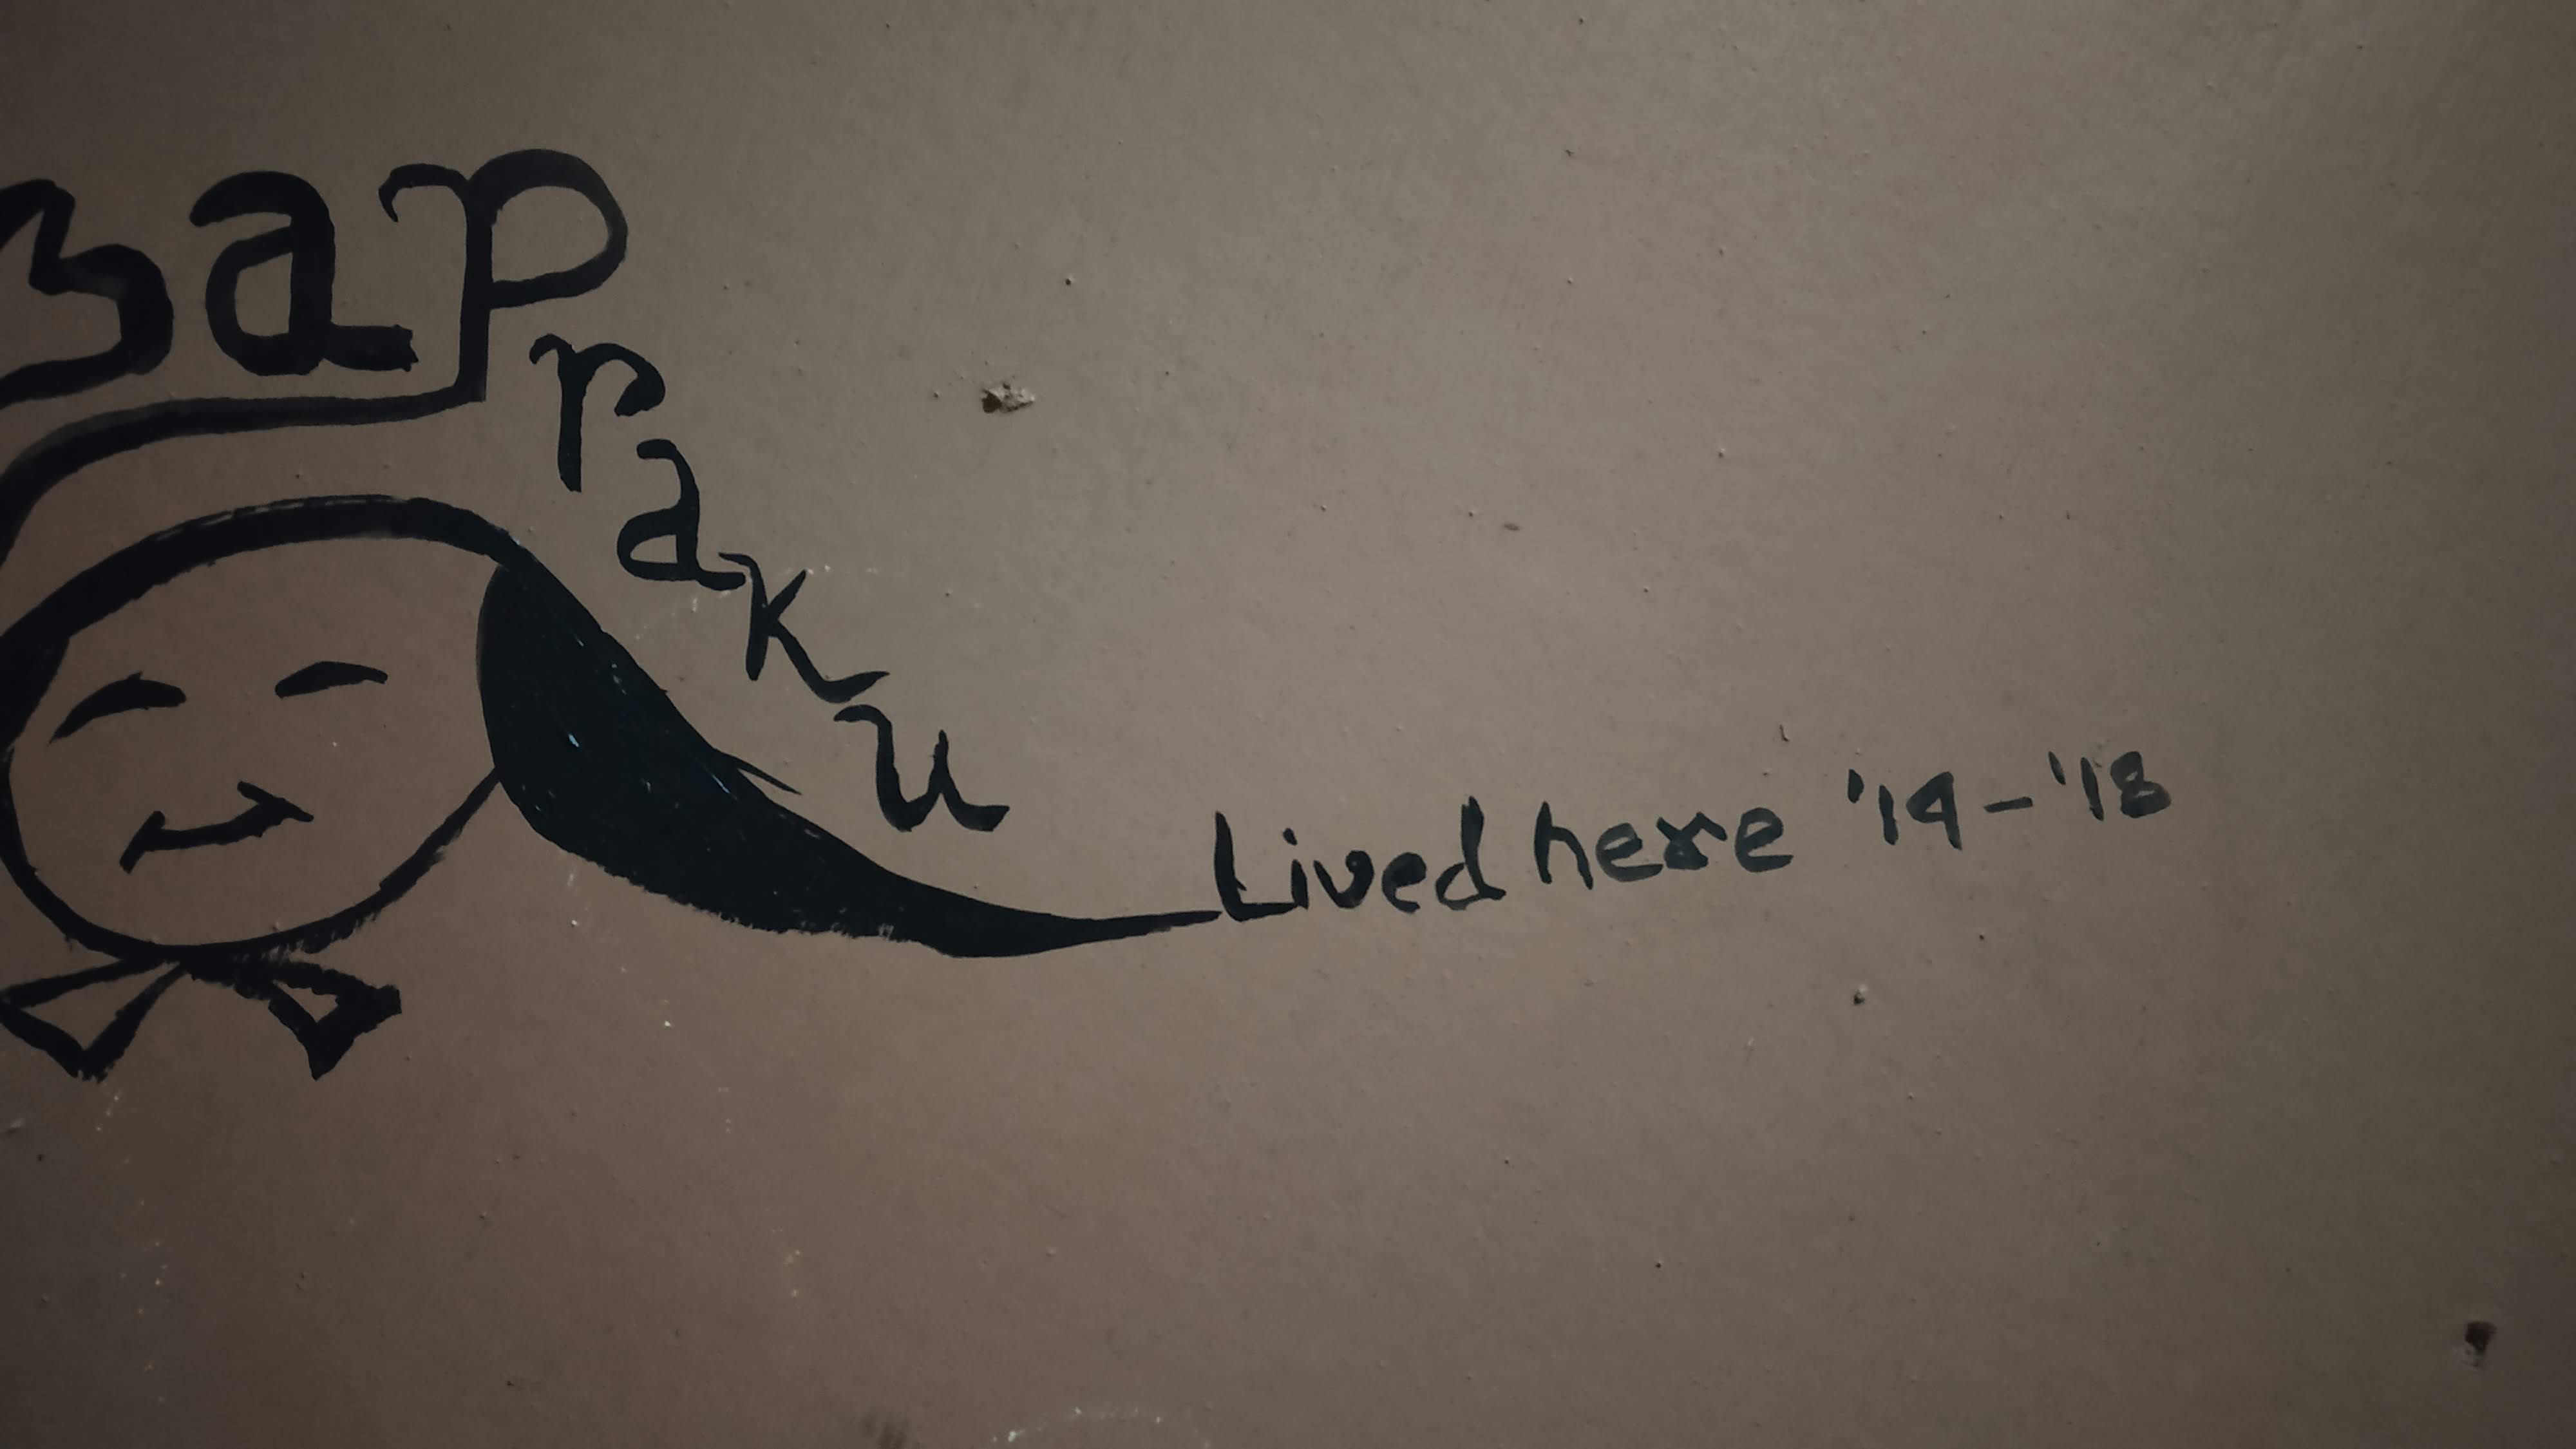 sap
raku
Lived here '14-'18